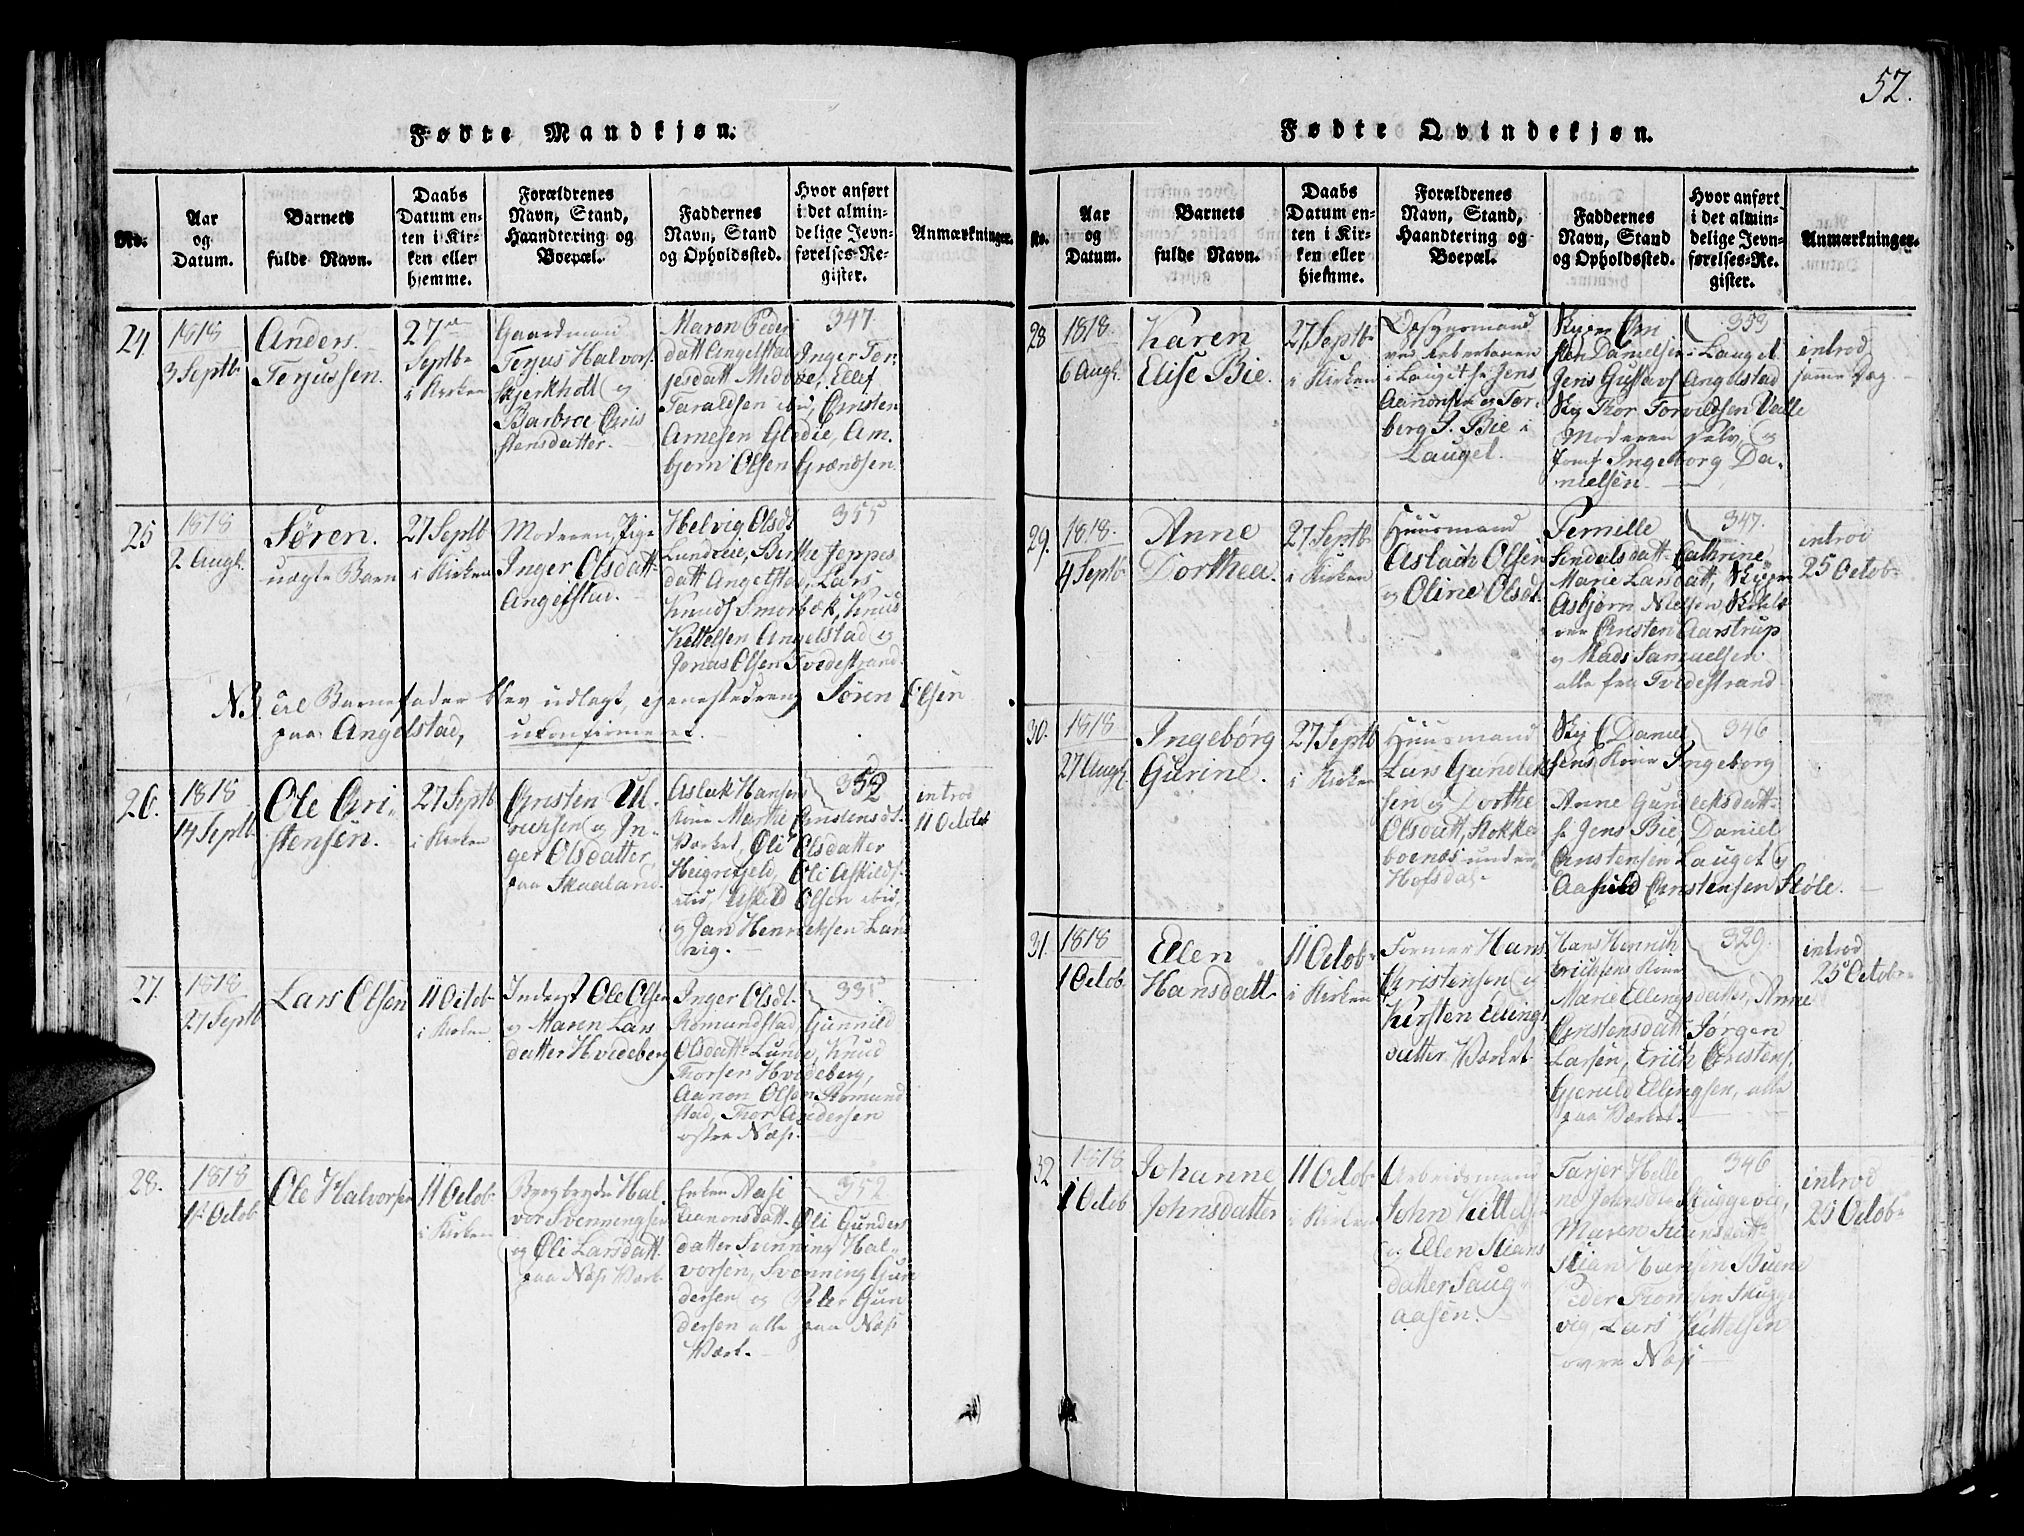 Fødte Mandkjøn.
No.
Aar og Datum.
Barnets fulde Navn.
Daabs Datum enten i Kirken eller hjemme.
Forældrenes Navn, Stand, Haandtering og Boepæl.
Faddernes Navn, Stand og Opholdssted.
Hvor anført i det almindelige Jevnførelses-Register.
Anmærkninger.
24
1818
3 Septb
Anders
Terjussen.
27de
Septb
i Kirken
Gaardmand
Terjus Halvors.
Kjerkholt og
Barbroe Chris
stensdatter.
Maren Peders
datt Angelstad, Inger Ter-
jesdatt Medboe, Ellef
Taraldsen ibid, Christen
Arnesen Glødie, Am-
bjørn Olsen Grændsen
347
25
1818
2 Augl.
Søren.
uægte Barn
27 Septb
i Kirken
Moderen Pige
Inger Olsdatt
Angelstad.
Helvig Olsdt
Lundeie, Berthe Jeppes
datt Angelstad, Lars
Knuds Smørbæk, Knud
Kittelsen Angelstad og
Jonas Olsen Tvedestrand.
355
NB. til Barnefader blev udlagt, Søren Olsen
paa Angelstad, ukonfirmeret.
26.
1818
14 Septb
Ole Chri-
stensen.
27 Septb
i Kirken
Christen Ul-
richsen og In-
ger Olsdatter
paa Skaaland.
Aslak Hansens
Kone Marthe Christensdt.
Værket, Øli Olsdatter
Heigrefjeld, Oli Askilds
ibid, Askild Olsen ibid,
og Jan Henriksen Lar
vig.
352
introd
11 Octob
27.
1818
27 Septb
Lars Olsen
11 Octob
i Kirken
Inderst Ole Olsen
og Maren Lars
datter Hvideberg
Inger Olsdt.
Romundstad, Gunnild
Olsdatt Lunde, Knud
Thorsen Hvideberg,
Aanon Olsen Romund
stad, Thor Andersen
østre Næs.
335
28.
1818
1ste Octob
Ole Halvorsen
11 Octob
i Kirken
Bergbryder Hal-
vor Svenningsen
og Øli Larsdatt.
paa Næs Værk
Enken Aasi
Aanonsdatt Øli Gunders
datter Svenning Hal-
vorsen, Svenning Gun
dersen og Peder Gun
dersen alle paa Næs
Værk.
352
52.
Fødte Qvindekjøn.
No.
Aar og Datum.
Barnets fulde Navn.
Daabs Datum enten i Kirken eller hjemme.
Forældrenes Navn, Stand, Haandtering og Boepæl.
Faddernes Navn, Stand og Opholdssted.
Hvor anført i det almindelige Jevnførelses-Register.
Anmærkninger.
28
1818.
6 Augl.
Karen
Elise Bie.
27 Septb
i Kirken
Opsynsmand
ved Arbeidanen
i Lauget Hr Jens
Aanonsen og Tor-
berg J. Bie i
Lauget.
Skipr Chri
sten Danielsen i Lauget
Jens Gustavs Angelstad
Skip Thor Torvildsen Valle
Moderen selv, og
Jomf Ingeborg Da-
nielsen
353
introd
samme Dag
29.
1818.
4 Septb
Anne
Dorthea.
27 Septb
i Kirken
Huusmand
Aslach Olsen
og Oline Olsdt.
Pernille
Sindalsdatt Cathrine
Marie Larsdatt, Skipr
Asbjørn Nielsen,
Christen Aarstrup
og Mads Samuelsen
alle fra Tvedestrand
347.
introd
25 Octob
30.
1818
27 Augl
Ingebørg
Gurine.
27 Septb
i Kirken
Huusmand
Lars Gundek
sen og Dorthe
Olsdatt, Stokke
boenæs under
Hofsdal
Skip C Daniel
sens Kone Ingeborg
Anne Gundleksdatt
Hr Jens Bie, Daniel
Christensen Lauget og
Aasuld Christensen Støle.
346
31.
1818
1 Octob.
Ellen
Hansdatt
11 Octob
i Kirken
Former Hans
Christensen og
Kirsten Ellings
datter Værket
Hans Henrich
Erichsens Kone
Marie Ellingsdatter, Anne
Christensdatt Jørgen
Larsen, Erich Christens.
Gjeruld Ellingsen, alle
paa Værket.
329.
introd
25 Octob
32
1818.
1 Octob
Johanne
Johnsdatter
11 Octob
i Kirken
Arbeidsmand
John Kittels
og Ellen Stians
datter Saug
aasen.
Tarjer Helle
ne Johnsdr Skuggevig,
Maren Knudsdatt
Stian Hansen Buene
Peder Thomsen Skugge
vig, Lars Kittelsen
øvre Næs
346
introd
25 Octob